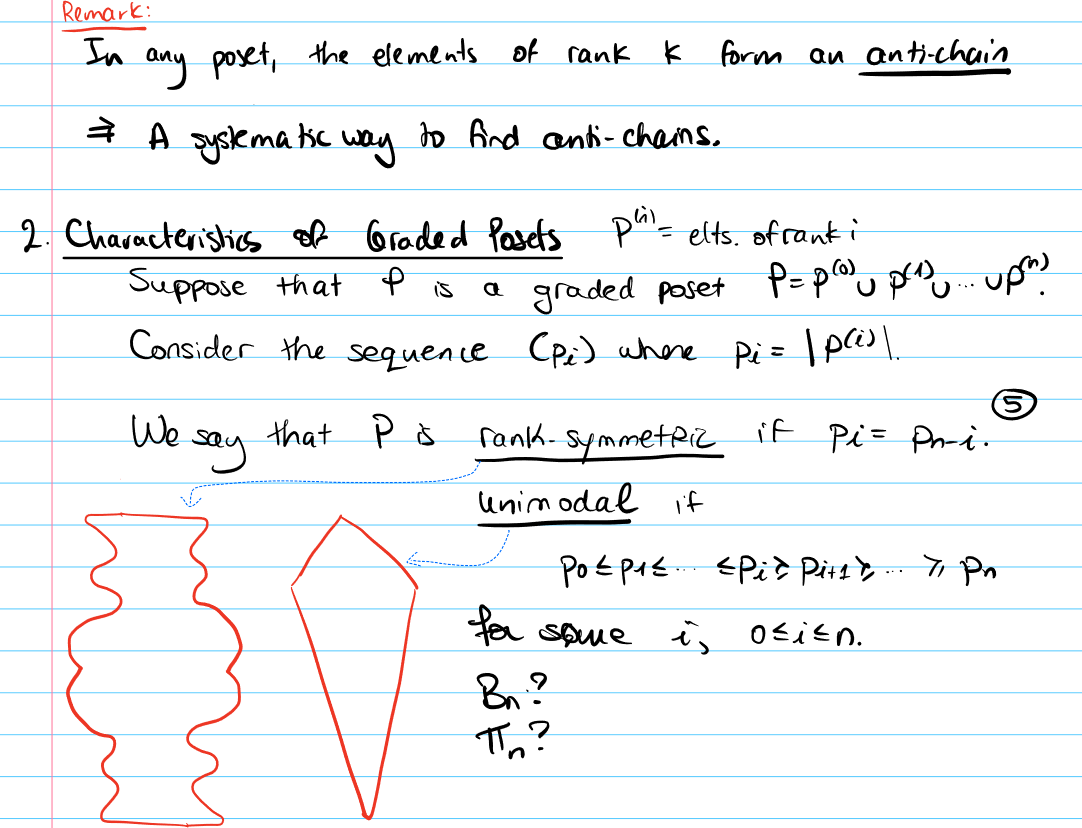 Remark:
In any poset, the elements of rank k form an anti-chain
⇒ A systematic way to find anti-chains.
2. Characteristics of Graded Posets P⁽ⁱ⁾ = elts. of rank i
Suppose that P is a graded poset P = P⁽⁰⁾ ∪ P⁽¹⁾ ∪ ... ∪ P⁽ⁿ⁾.
Consider the sequence (pᵢ) where pᵢ = |P⁽ⁱ⁾|.
⑤
We say that P is rank-symmetric if pᵢ = pₙ₋ᵢ.
unimodal if
p₀ ≤ p₁ ≤ ... ≤ pᵢ ≥ pᵢ₊₁ ≥ ... ≥ pₙ
for some i, 0 ≤ i ≤ n.
Bₙ?
Πₙ?